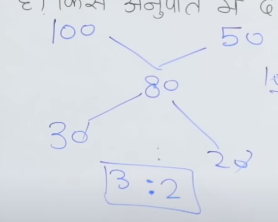 है। किस अनुपात में
100 50
80
30 20
3 : 2